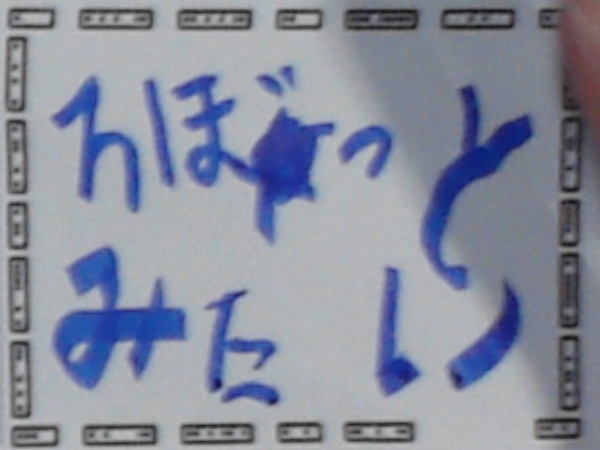 ろぼっと
みたい